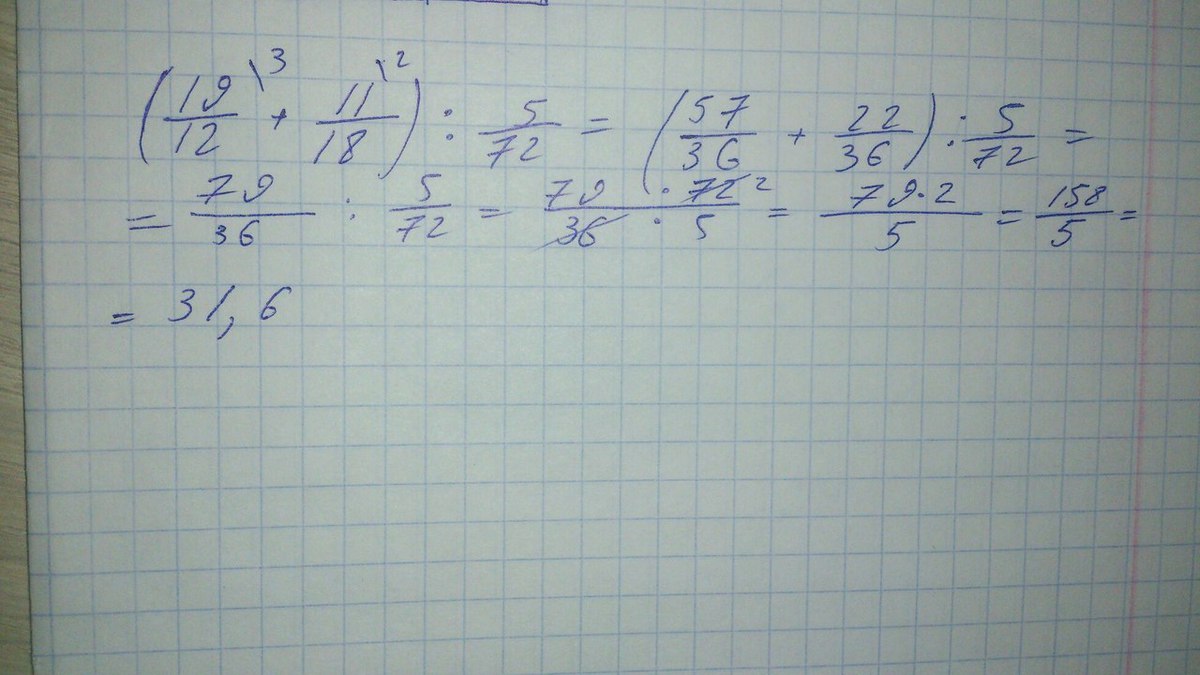 (19/12 \3 + 11/18 \2) : 5/72 = (57/36 + 22/36) : 5/72 =
= 79/36 : 5/72 = 79 · 72 2/36 · 5 = 79·2/5 = 158/5 =
= 31,6